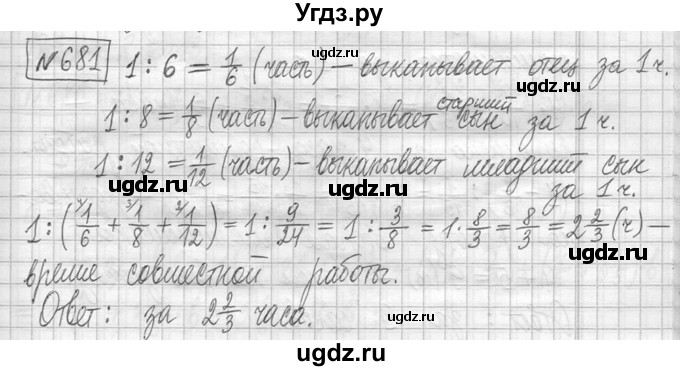 Угдз.ру
№681 1 : 6 = 1/6 (часть) – выкапывает отец за 1 ч.
1 : 8 = 1/8 (часть) – выкапывает старший сын за 1 ч.
1 : 12 = 1/12 (часть) – выкапывает младший сын
за 1 ч.
1 : (⁴⁾1/6 + ³⁾1/8 + ²⁾1/12) = 1 : 9/24 = 1 : 3/8 = 1 · 8/3 = 8/3 = 2 2/3 (ч) –
время совместной работы.
Ответ: за 2 2/3 часа.
ugdz.ru
ugdz.ru
ugdz.ru
ugdz.ru
ugdz.ru
ugdz.ru
ugdz.ru
ugdz.ru
ugdz.ru